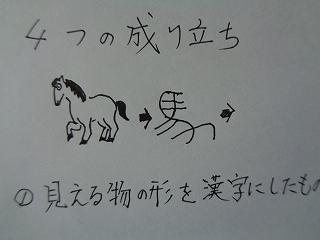 4つの成り立ち
馬
①見える物の形を漢字にしたもの